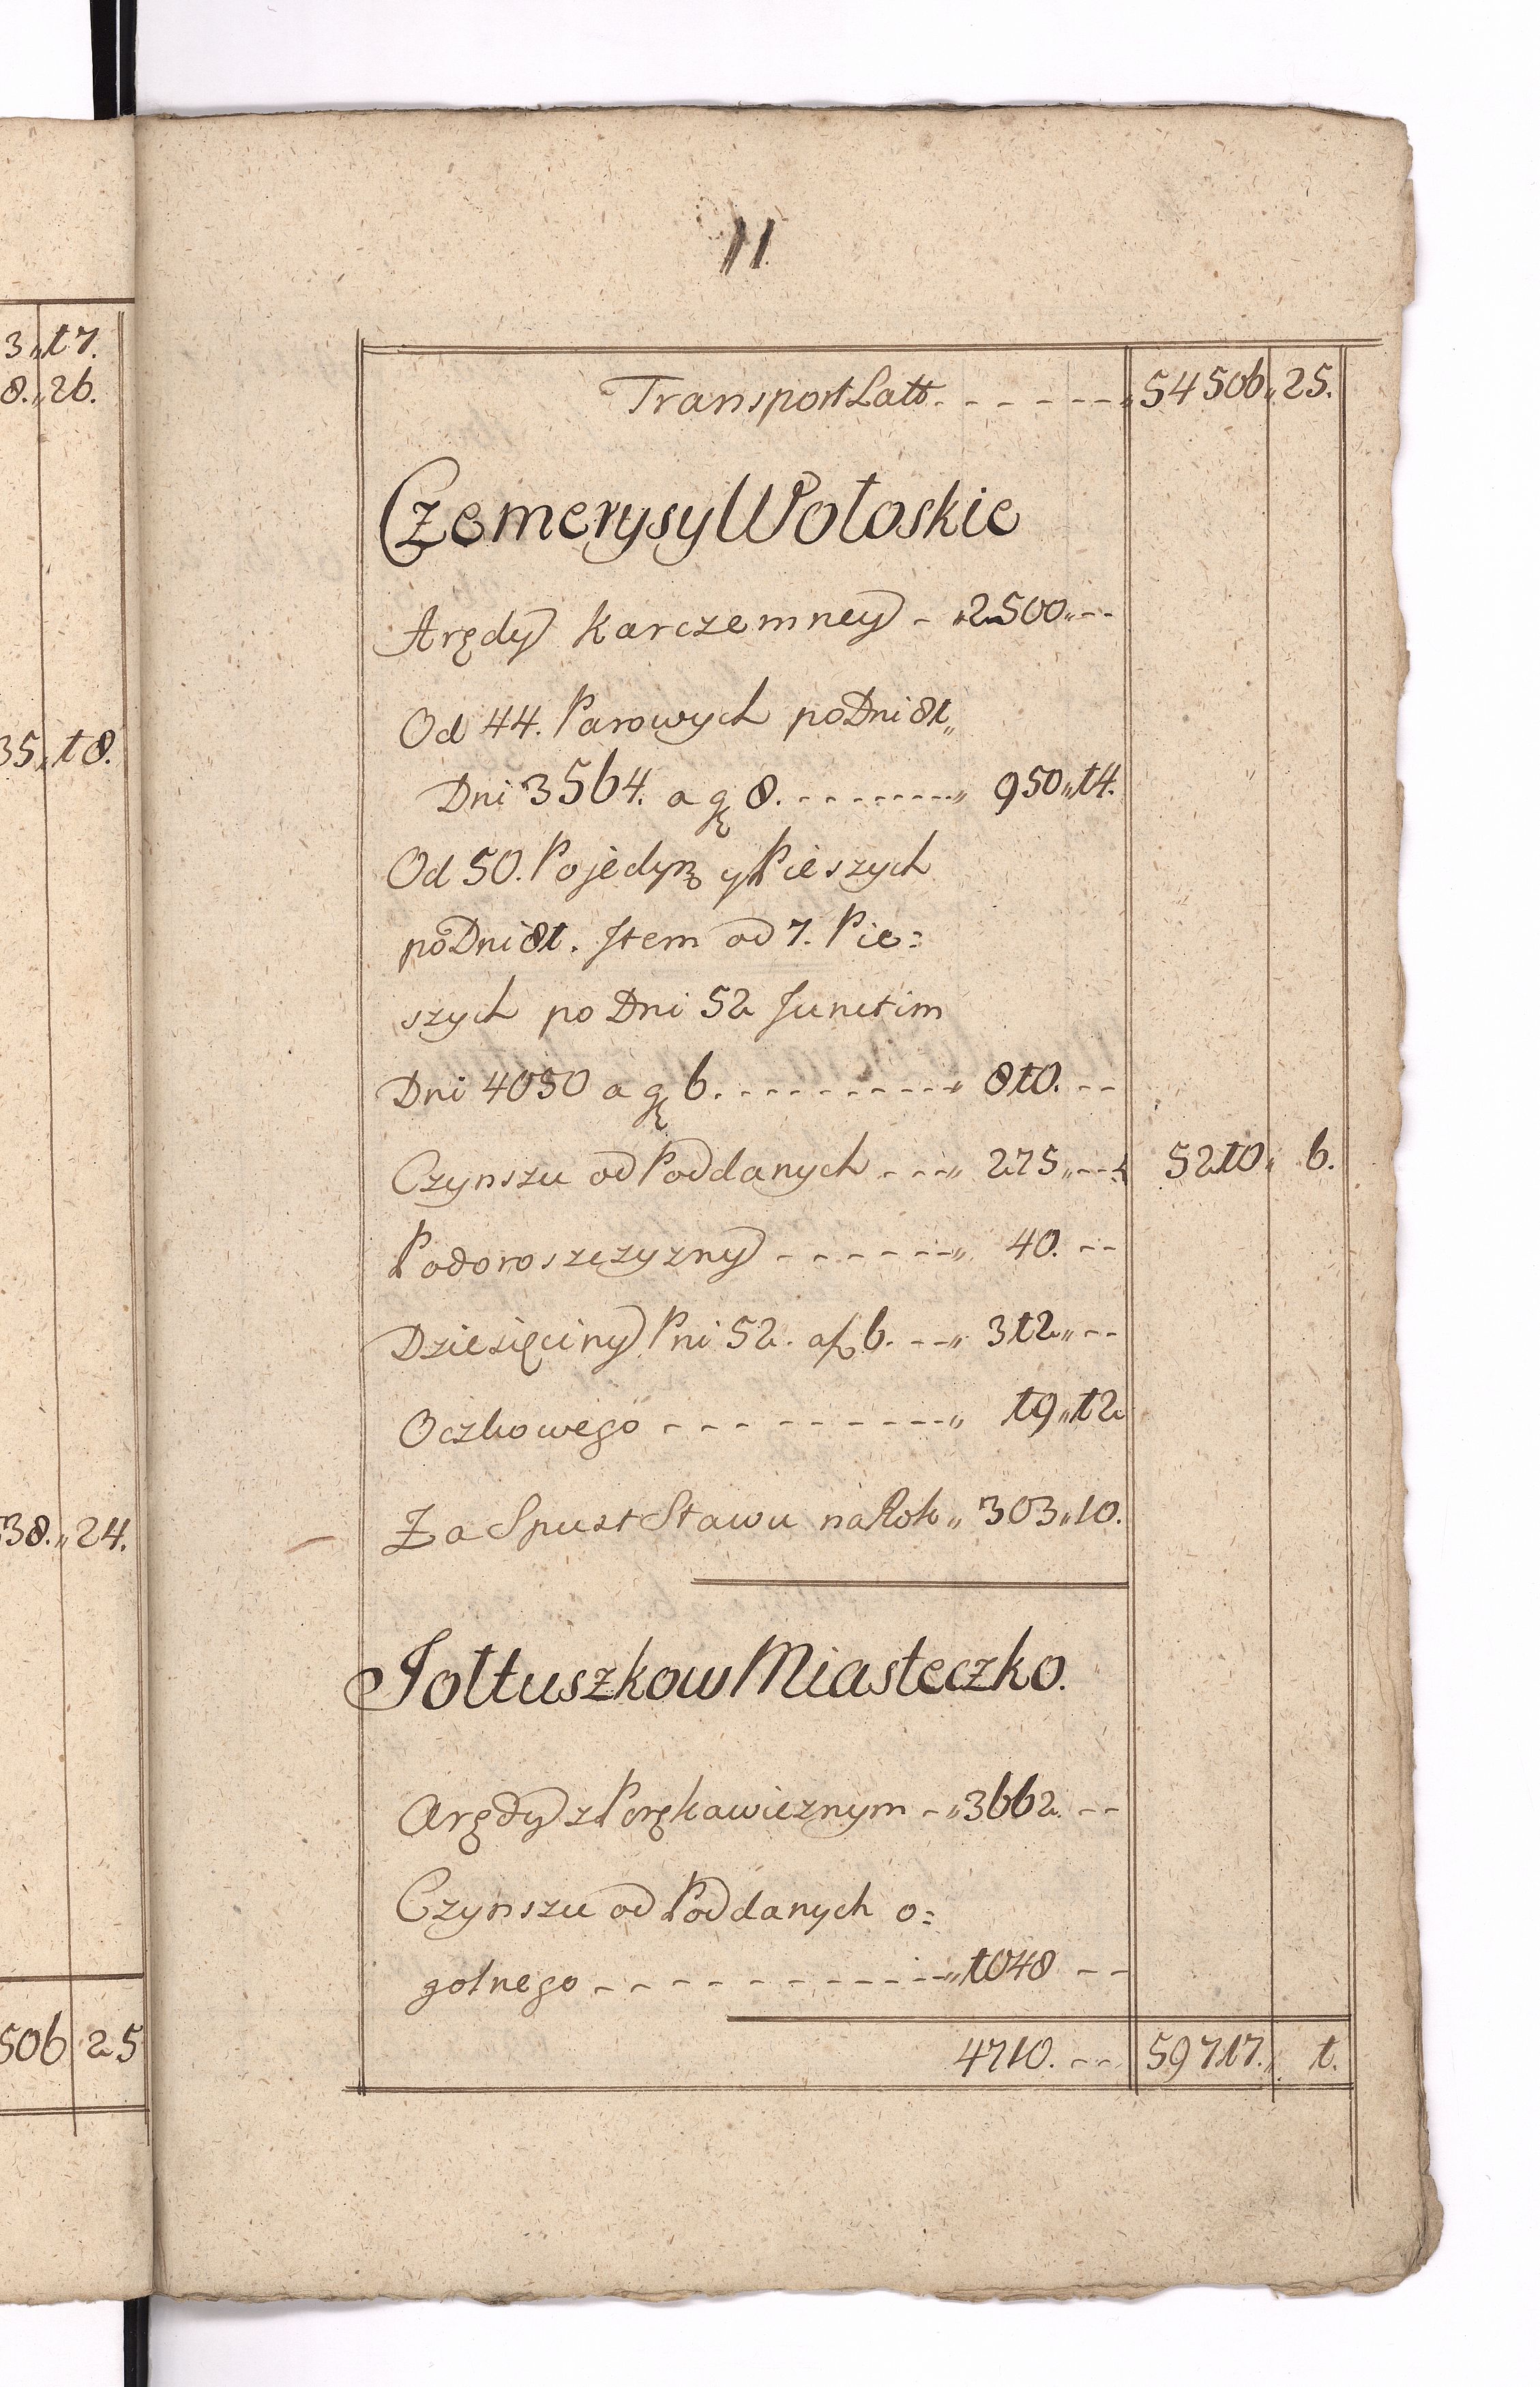 3 „ 17.
8. „ 26.
35 „ 18.
38. „ 24.
506 25
11.
Transport Latt. - - - - - - „ 54506 „ 25.
Czemerysy Wołoskie
Arędy Karczemney - „ 2500 „ --
Od 44. Parowych po Dni 81 „
Dni 3564. a gr 8. - - - - - - - - „ 950 „ 14.
Od 50. Pojedyn y Pieszych
po Dni 81. Item od 7. Pie=
szych po Dni 52 Junctim
Dni 4050 a gr 6. - - - - - - - - - - „ 810. --
Czynszu od Poddanych - - - „ 275 „ - - - 5210 „ 6.
Podoroszczyzny - - - - - - - „ 40. --
Dziesięciny Pni 52. a f 6. - - - „ 312 „ --
Oczkowego - - - - - - - - - - „ 19 „ 12
Za Spust Stawu na Rok „ 303 „ 10.
Jołtuszkow Miasteczko.
Arędy z Porękawicznym - „ 3662. --
Czynszu od Poddanych o=
golnego - - - - - - - - - - - - „ 1048 --
4710. -- 59717. „ 1.